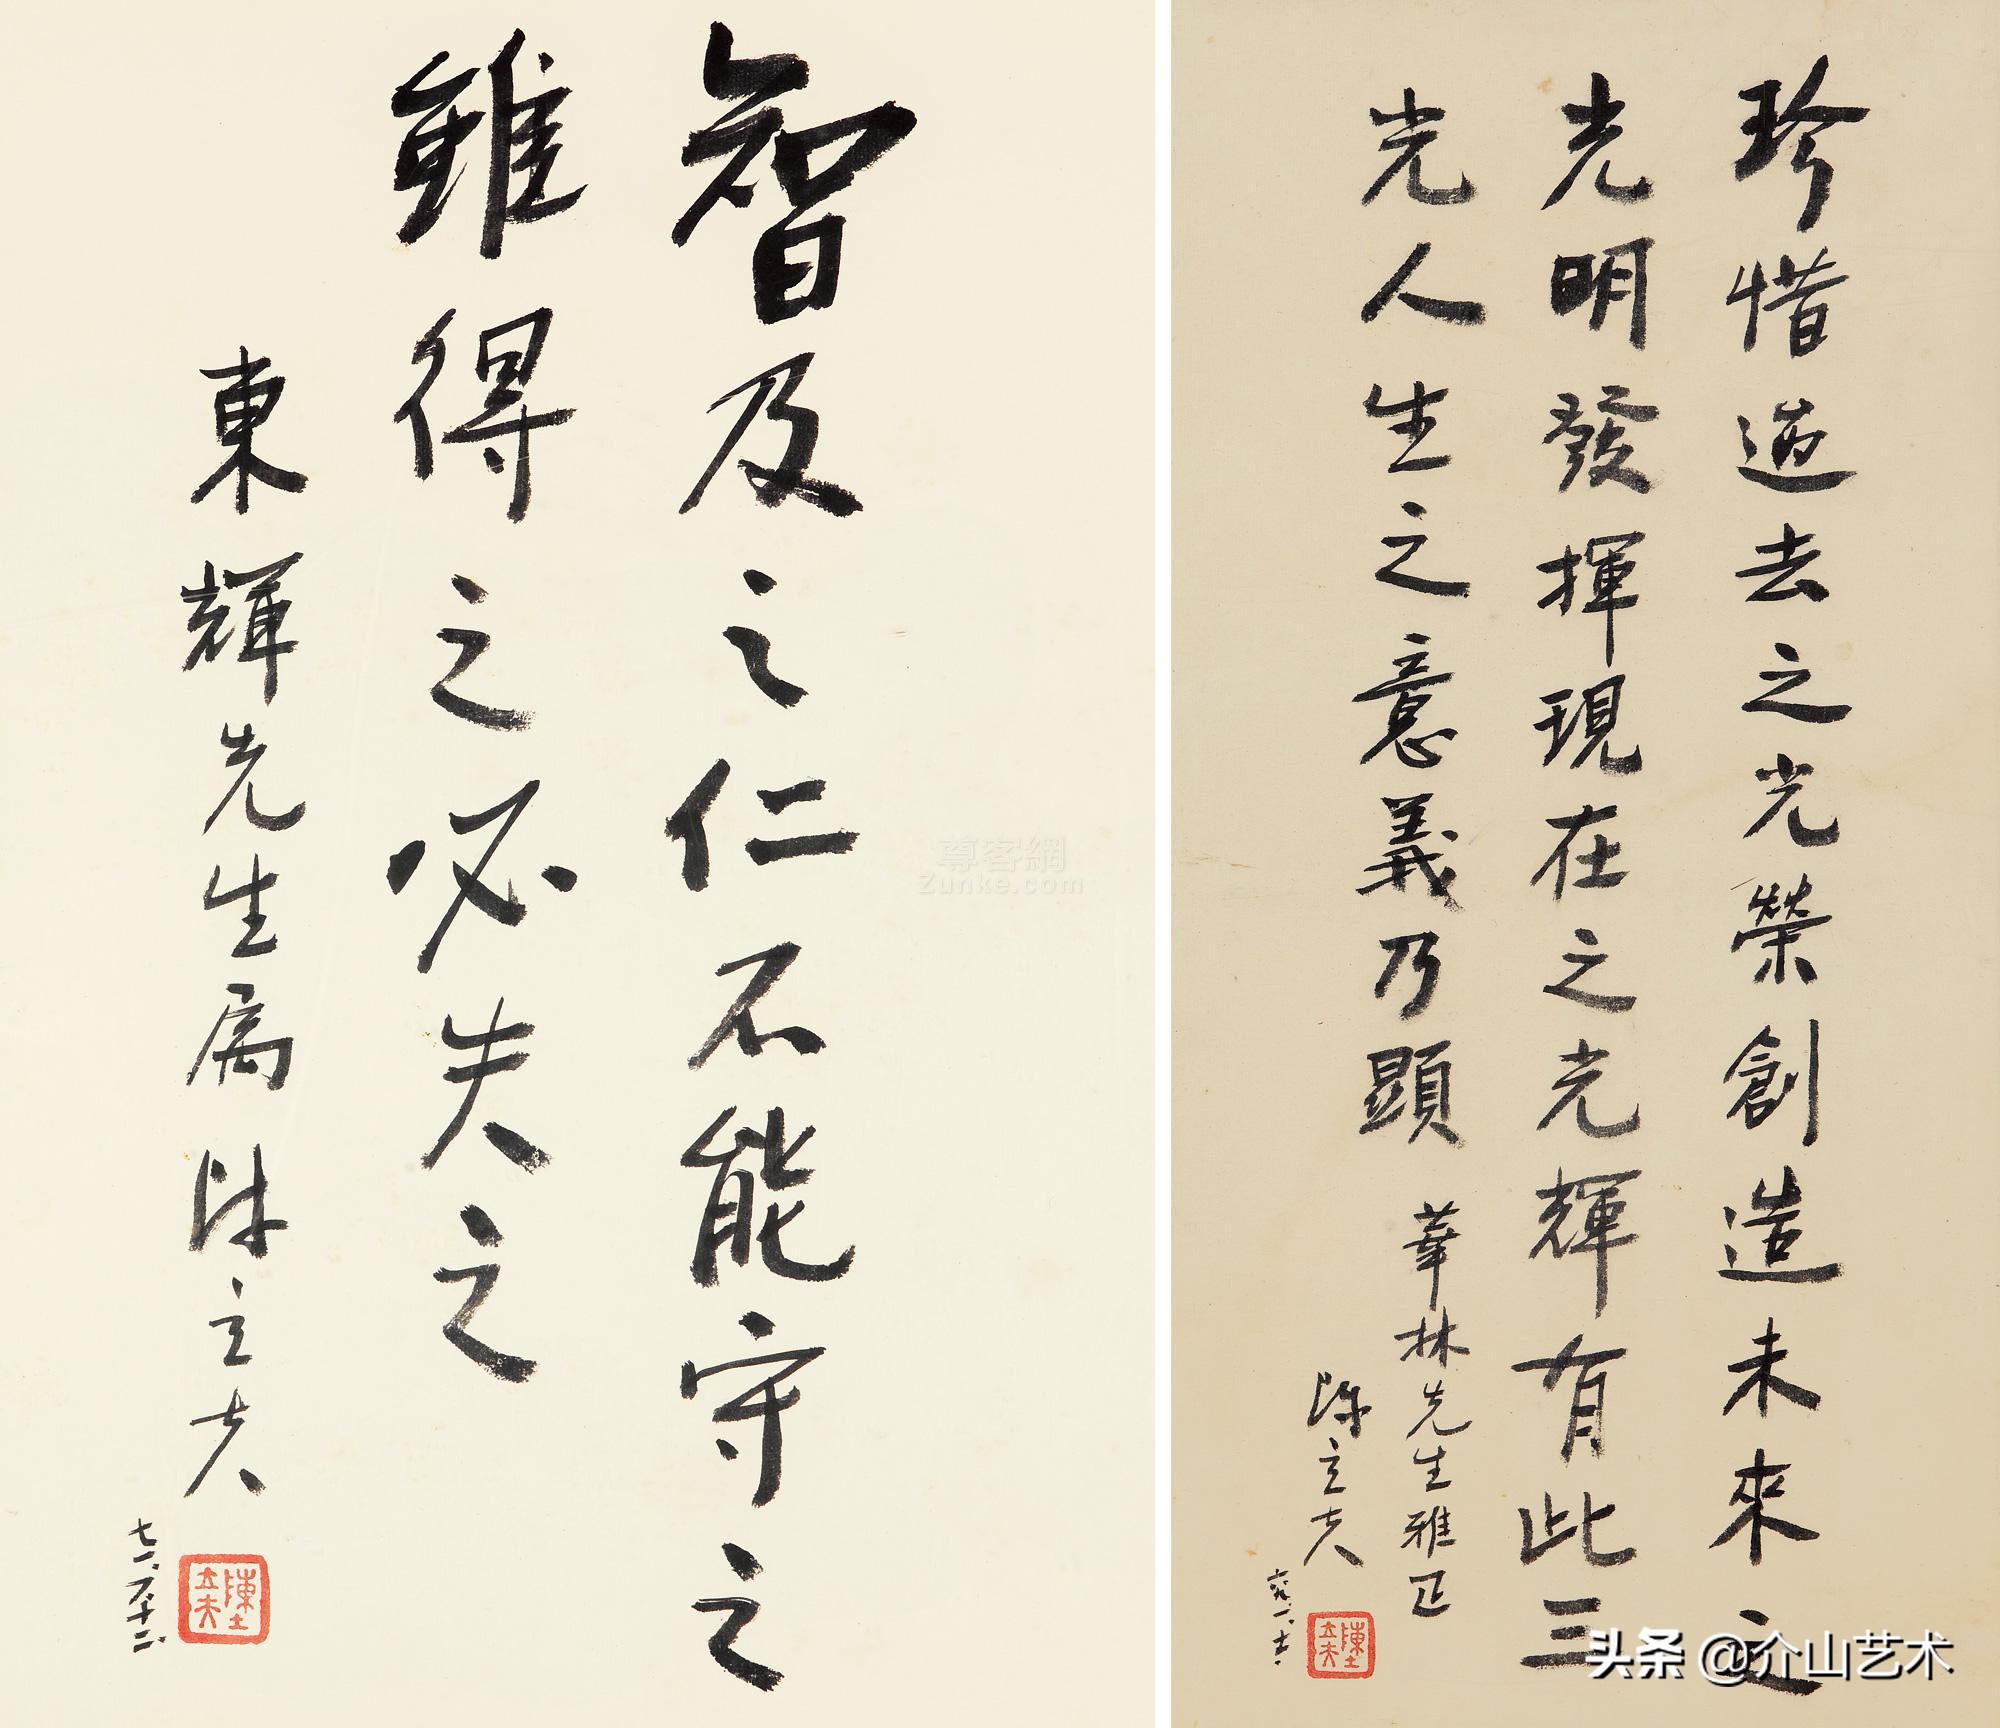 智及之仁不能守之
雖得之必失之
東輝先生屬陳立夫
七一、六、十二、
陳立夫
尊客網
Zunke.com
珍惜過去之光榮創造未來之
光明發揮現在之光輝有此三
光人生之意義乃顯
華林先生雅正
陳立夫
陳立夫
头条 @介山艺术